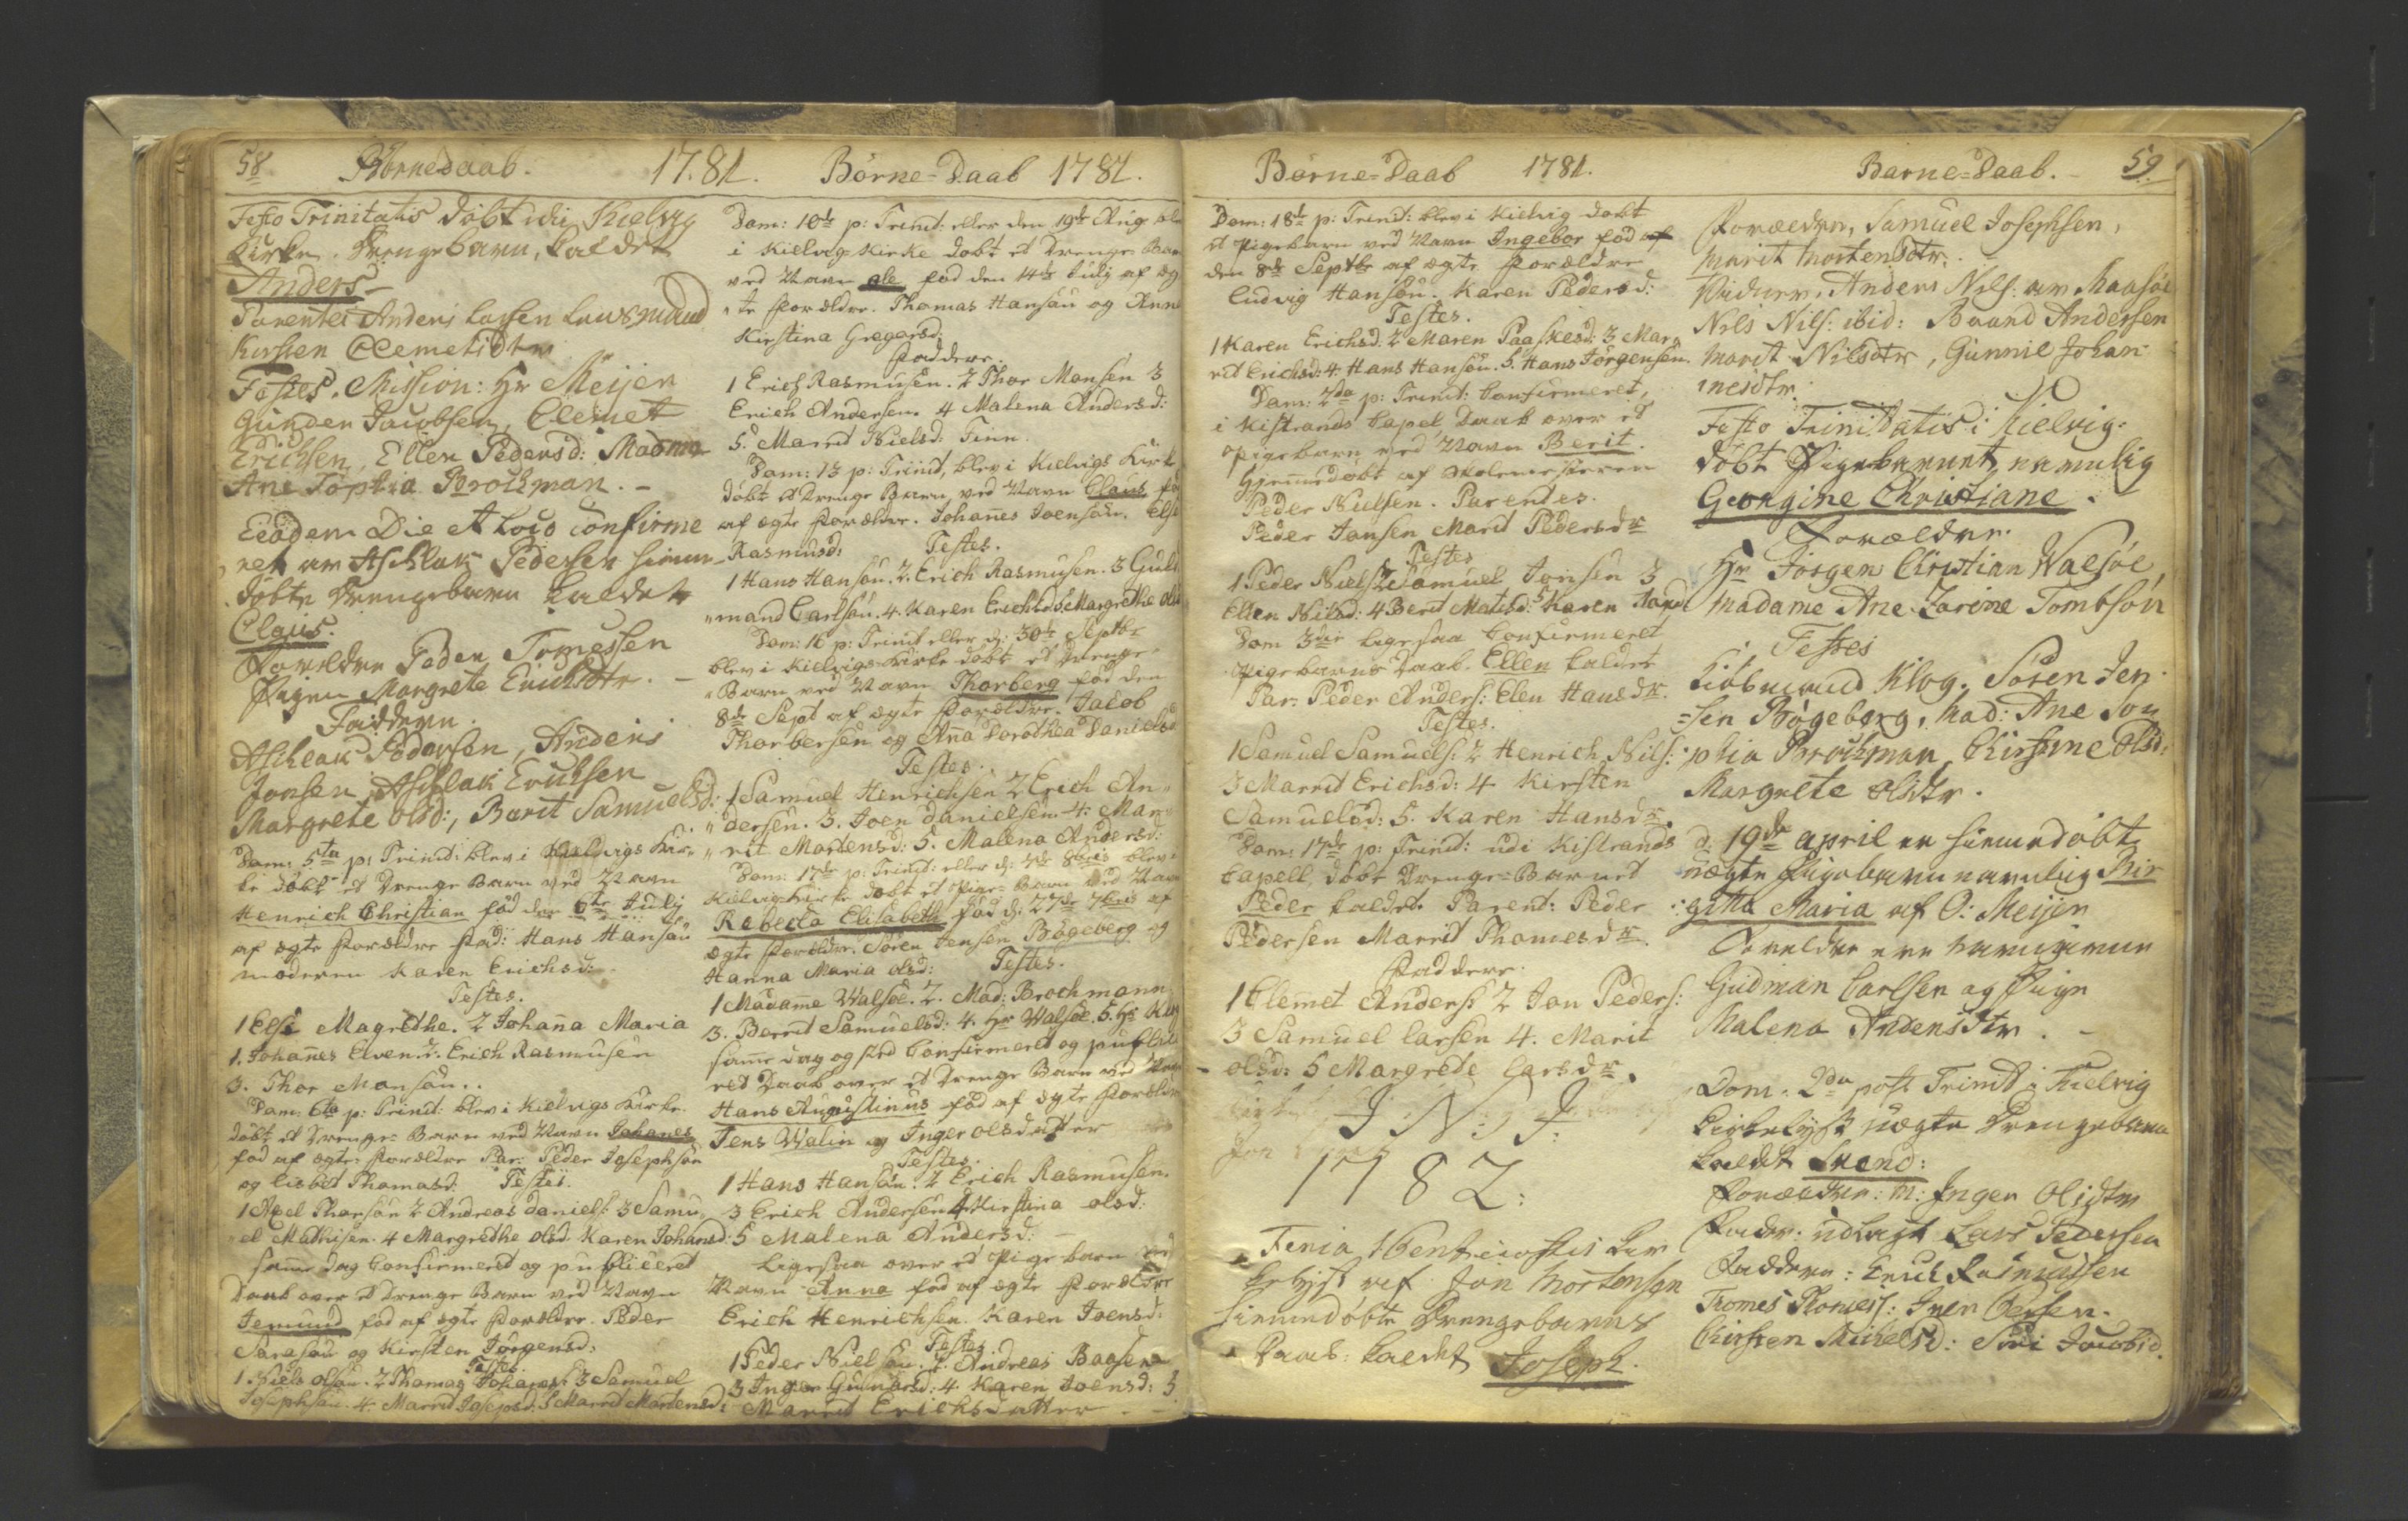 58 Börnedaab. 1781.
Festo Trinitatis döbt udi Kielvig
Kirke. Drengebarn, kaldet
Anders
Parentes Anders Lassen
Kirsten Clemetsdtr
Testes. Mission: Hr Meijer
Gunder Jacobsen, Clemet
Erichsen, Ellen Pedersd: Madme
Ane Sophia Brochman. -
Eeodem Die et Loco confirme
ret av Aschlak Pedersen hiemme
döbte Drengebarn kaldet
Claus.
Forældre Peder Tomessen
Pigen Margrete Erichsdtr. -
Faddere.
Aschlak Pedersen, Anders
Jonsen, Aschlak Erichsen
Margrete Olsd:, Barit Samuelsd:
Dom: 5ta p: Trinit: blev i Kielvigs Kir-
ke döbt et Drenge Barn ved Navn
Henrich Christian föd den 6te July
af ægte Forældre Fad: Hans Hansön
moderen Karen Erichsd:
Testes.
1 Else Magrethe. 2 Johanna Maria
1. Johannes Even. 2. Erich Rasmusen
3. Thor Monsön..
Dom: 6ta p: Trinit: blev i Kielvigs Kirke
döbt et Drenge-Barn ved Navn Johanes
föd af ægte Forældre Par: Peder Josephsön
og Lisbet Thomasd: Testes.
1 Axel Thorsön 2 Andreas Daniels: 3 Samu-
el Mathisen. 4 Margrethe Olsd. Karen Johansd:
samme dag Confirmeret og publiceret
Daab over et Drenge Barn ved Navn
Jemund föd af ægte Forældre. Peder
Sarasön og Kirsten Jörgensd:
Testes.
1 Niels Olsön. 2 Thomas 3 Samuel
Josephsön. 4. Marrit Josepsd: 5 Marrit Mortensd:
Börne-Daab 1781.
Dom: 10de p: Trinit: eller den 19de Aug
i Kielvig Kirke döbt et Drenge Barn
ved Navn Ole föd den 14de July af æg
te Forældre. Thomas Hansön og Anne
Kirstina Gregersd.
Faddere.
1 Erich Rasmusen. 2 Thor Monsen 3
Erich Andersen. 4 Malena Andersd:
5. Marrit Nielsd: Finn.
Dom: 13 p: Trinit, blev i Kielvigs Kirke
döbt et Drenge Barn, ved Navn Claus
af ægte Forældre. Johannes Joensön. Else
Rasmusd: Testes.
1 Hans Hansön. 2. Erich Rasmusen. 3 Gul
mand Carlsön. 4. Karen Erichsd 5 Margrethe Ols
Dom: 16 p: Trinit eller d: 30te Septbr
blev i Kielvigs Kirke döbt et Drenge-
Barn ved Navn Thorberg föd den
8de Sept af ægte Forældre. Jacob
Thorbersen og Anna Dorothea Danielsd
Testes.
1 Samuel Henrichsen 2 Erich An-
dersen. 3. Joen Danielsen 4. Mar-
rit Mortensd: 5. Malena Andersd:
Dom: 17de p: Trinit: eller d: 8bris blev i
Kielvig Kirke döbt et Pige-Barn ved Navn
Rebecca Elisabeth föd d: 27de 7bris af
ægte Forældre. Sören Jensen Bögeberg og
Hanna Maria Olsd: Testes.
1 Madame Walsöe. 2. Mad: Brochmann
3. Berrit Samuelsd: 4. Hr Walsöe. 5. Hr
samme dag og sted Confirmeret og
ret Daab over et Drenge Barn ved
Hans Augustinus föd af ægte Forældre
Jens Walin og Inger Olsdatter
Testes.
1 Hans Hansön. 2 Erich Rasmusen.
3 Erich Andersen 4 Kirstina Olsd:
5 Malena Andersd: -
Ligesaa over et Pige barn ved
Navn Anna föd af ægte Forældre
Erich Henrichsen. Karen Joensd:
Testes
1 Peder Nielsön. 2. Andreas Baasen
3 Inger Gunarsd: 4. Karen Joensd: 5
Marrit Erichsdatter. -
Börne-Daab 1781.
Dom: 18d p: Trinit: blev i Kielvig döbt
et Pigebarn ved Navn Ingebor föd af
den 8de Septbr af ægte Forældre
Ludvig Hansön. Karen Pedersd:
Testes.
1 Karen Erichsd: 2 Maren Paaskesd: 3 Mar-
rit Erichsd: 4. Hans Hansön. 5. Hans Jörgensön.
Dom: 2da p: Trinit: Confirmeret,
i Kistrands Capel Daab over et
Pigebarn ved Navn Berit.
Hjemmedöbt af Skolemesteren
Peder Nielsen. Parentes.
Peder Jansen Marit Pedersdr
Testes
1 Peder Niels: 2 Samuel Jonsen 3
Ellen Nilsd: 4 Berit Matisd: 5 Karen
Dom 3tie Ligesaa Confirmeret
Pigebarns Daab. Ellen kaldet
Par: Peder Anders: Elen Hansdr.
Testes.
1 Samuel Samuels: 2 Henrich Nils:
3 Marrit Erichsd: 4 Kirsten
Samuelsd: 5. Karen Hansdr.
Dom: 17de p: Trinit: udi Kistrands
Capell, döbt Drenge-Barnet
Peder kaldet. Parent: Peder
Pedersen Marrit Thomesdr.
Faddere.
1 Clemet Anders: 2 Jon Peders:
3 Samuel Larsen 4. Marit
Olsd: 5 Margrete Larsdr.
I. N. J.
1782:
Feria Pentecostis
Jon Mortensen
hiemmedöbte Drengebarns
Daab: kaldet Joseph.
Barne-Daab. 59
Forældre, Samuel Josephsen,
Marit Mortensdtr.
Anders Nils: av Maasöe
Nils Nils: ibid: Baard Andersen
Marit Nilsdtr, Gunnil Johan
nesdtr.
Festo Trinitatis i Kielvig
döbt Pigebarnet, navnlig
Georgine Christiane.
Forældre.
Hr Jörgen Christian Walsöe,
Madame Ane Zarine Tombson
Testes
Kiöbmand Klog. Sören Jen
sen Bögeberg, Mad: Ane So
phia Brochman, Chirstine Olsd:
Margrete Olsdtr.
d. 19de april er hiemmedöbt
uægte Pigebarn navnlig Bir
gitta Maria af O: Meijer
Forældre
Gudman Carlsen og Pigen
Malena Andersdtr. -
Dom. 2da post Trinit i Kielvig
uægte Drengebarn
kaldet Svend:
Forældre: M: Inger Olsdtr
Fader: udlagt Lars Pedersen
Faddere: Erich Rasmussen
Tomes Tomess: Iver Olsen.
Chirsten Michelsd: Siri Jacobsd.